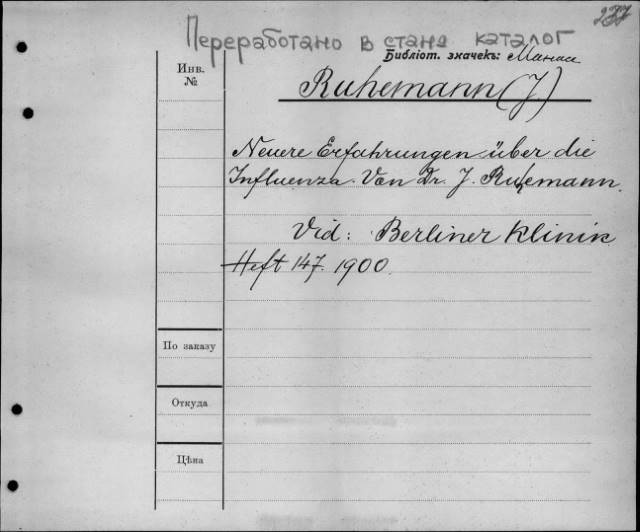 237
Переработано в станд каталог
Библіот. значекъ:
Инв.
№
Ruhemann (J.)
Neuere Erfahrungen über die
Influenza. Von Dr. J. Ruhemann.
Vid: Berliner Klinik
Heft 147. 1900.
По заказу
Откуда
Цѣна